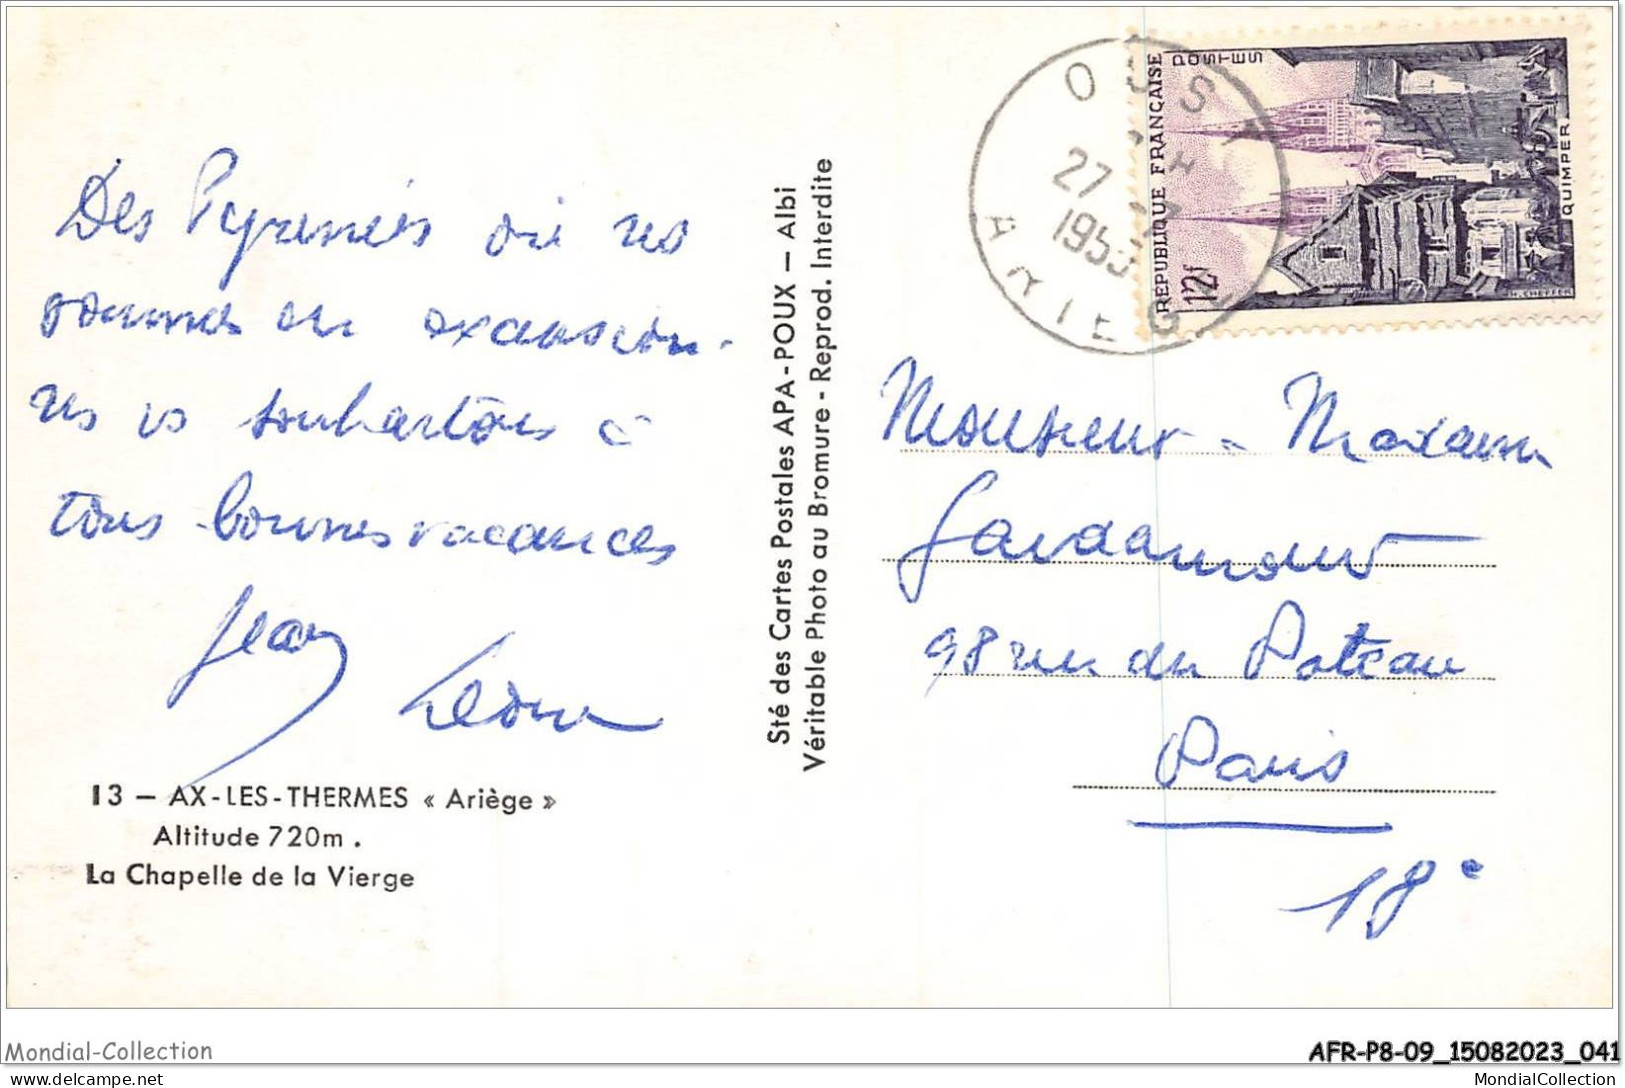 Des Pyrénées où ns
sommes en excursion.
ns vs souhaitons à
tous bonnes vacances
Jean
13 — AX-LES-THERMES « Ariège »
Altitude 720m.
La Chapelle de la Vierge
Sté des Cartes Postales APA-POUX — Albi
Véritable Photo au Bromure - Reprod. Interdite
OUST
27
1953
ARIEG
REPUBLIQUE FRANÇAISE
POSTES
12f
QUIMPER
Monsieur - Madame
98 rue du Poteau
Paris
18e
Mondial-Collection
AFR-P8-09_15082023_041
delcampe.net
MondialCollection